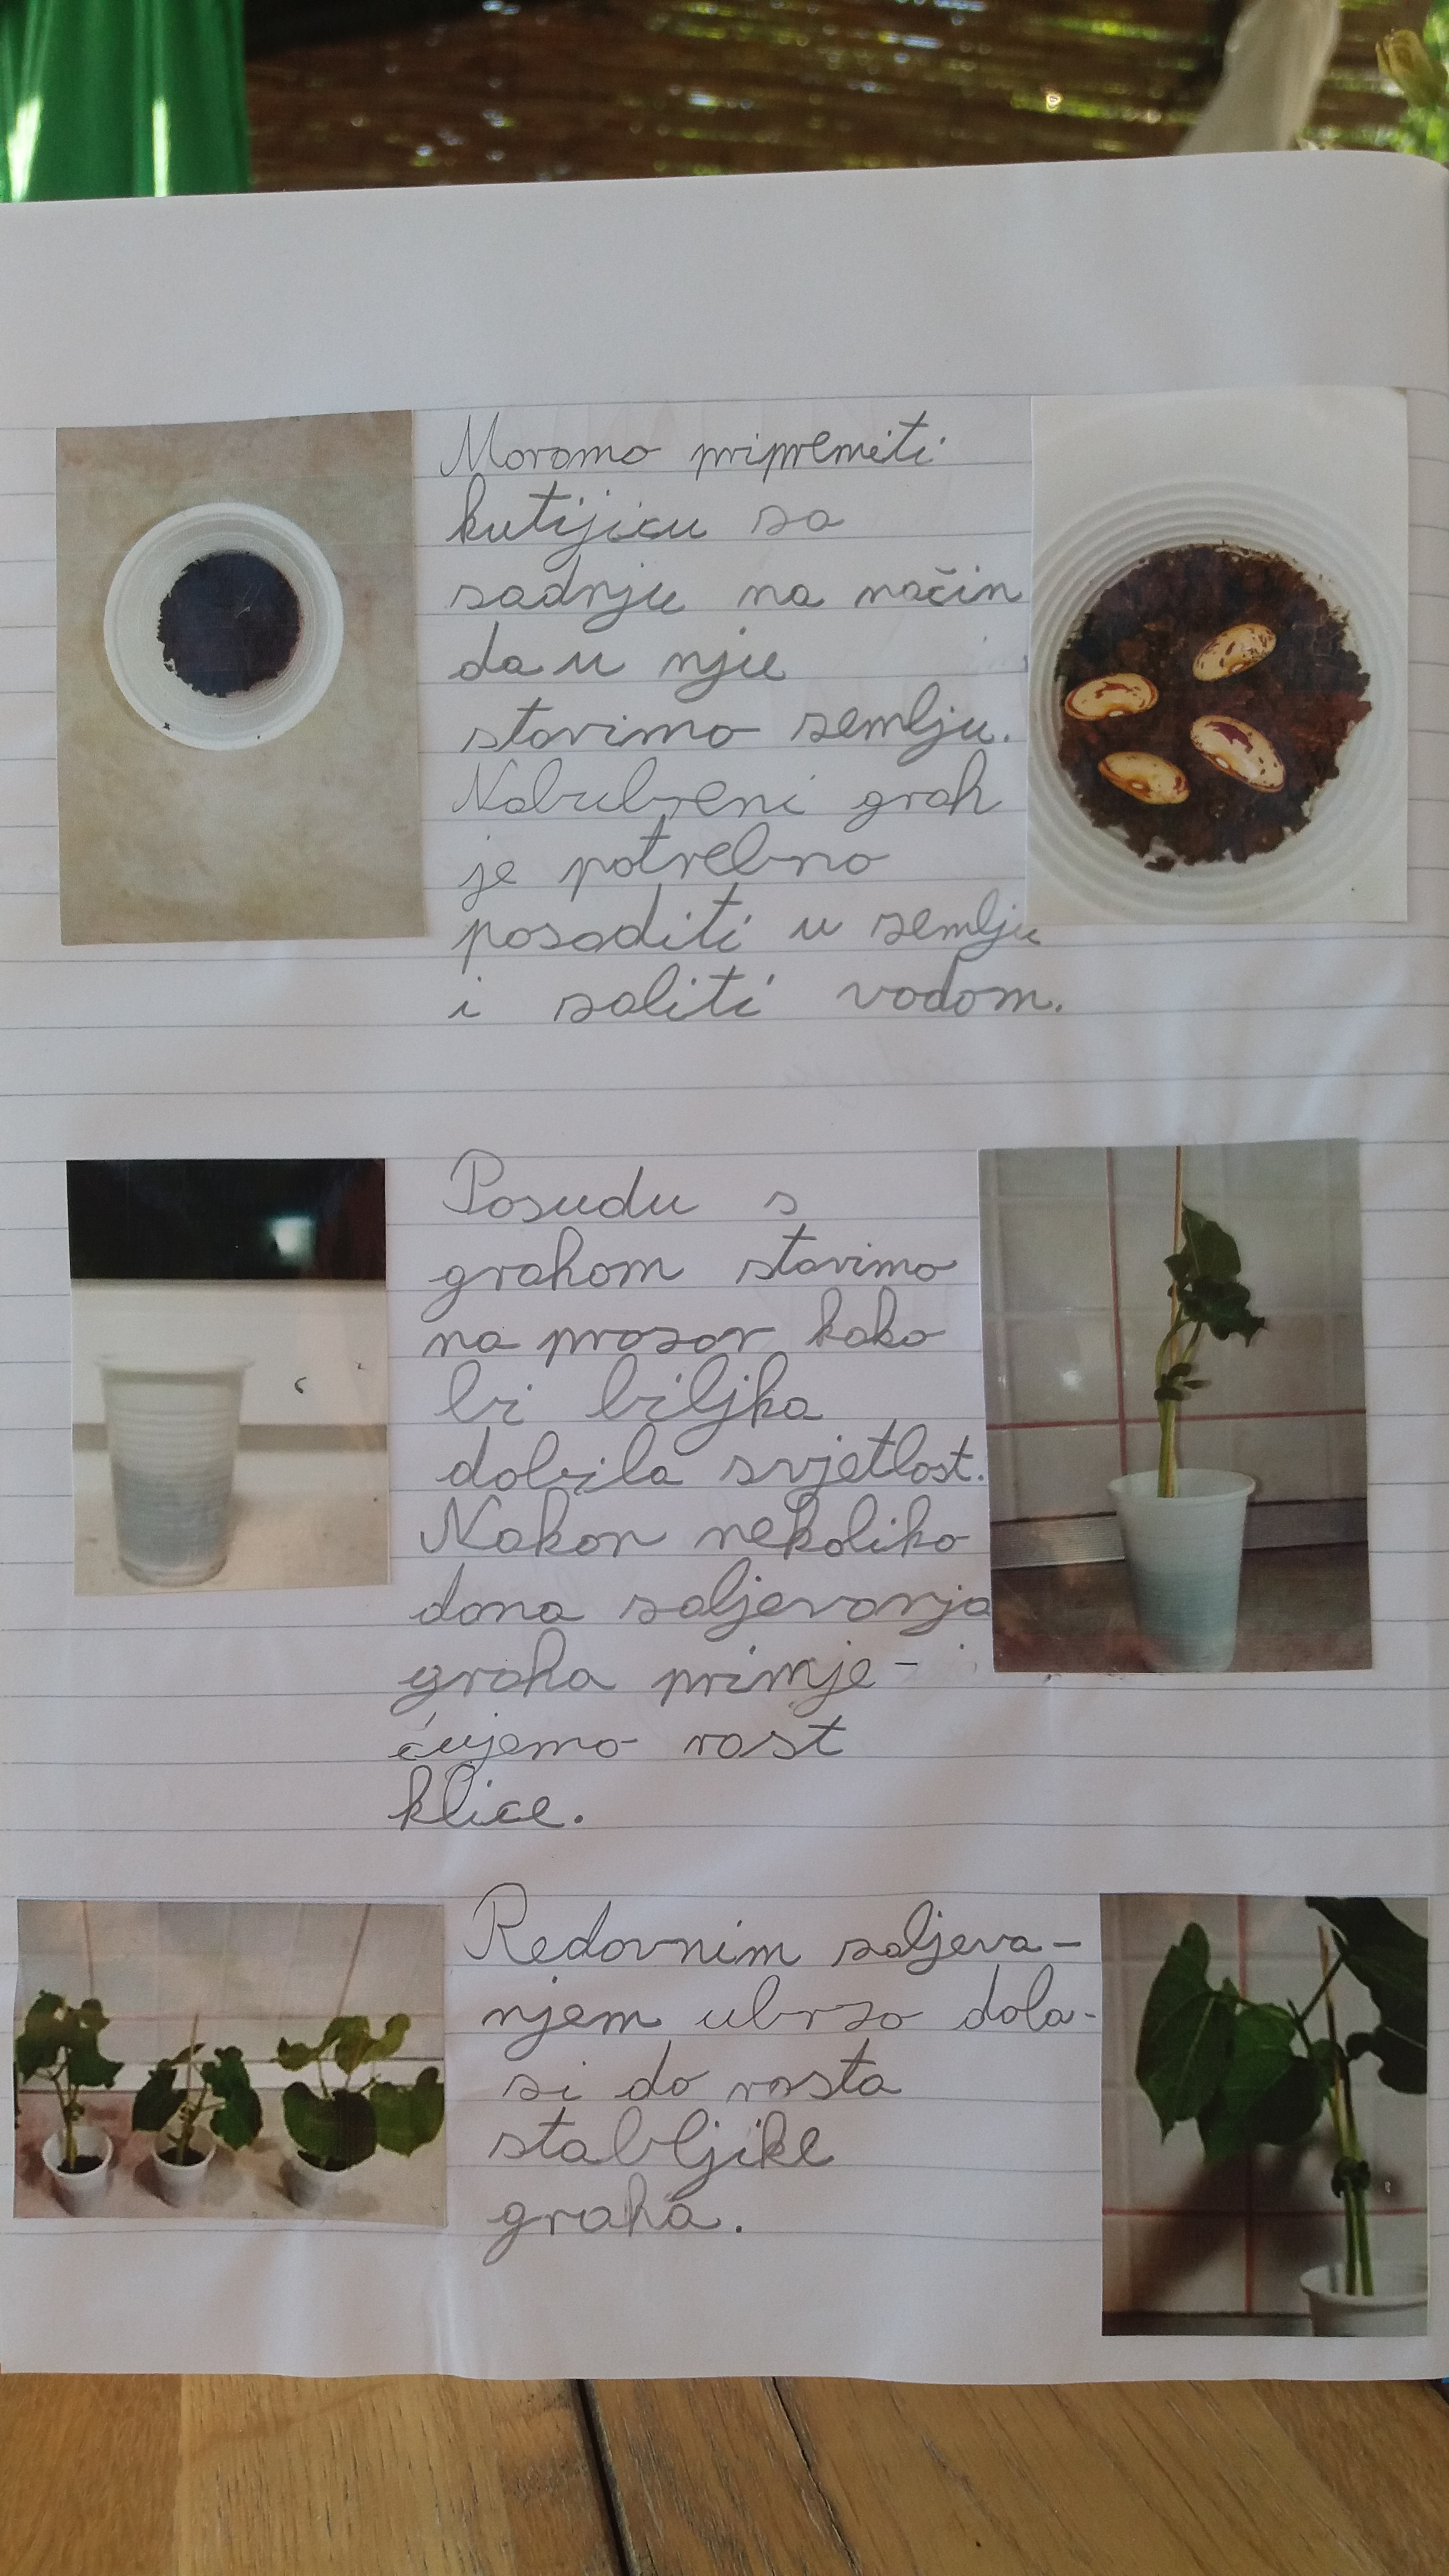 Moramo pripremiti
kutijicu za
sadnju na način
da u nju
stavimo zemlju.
Nabubreni grah
je potrebno
posaditi u zemlju
i zaliti vodom.
Posudu s
grahom stavimo
na prozor kako
bi biljka
dobila svjetlost.
Nakon nekoliko
dana zaljevanja
graha primje-
ćujemo rast
klice.
Redovnim zaljeva-
njem ubrzo dola-
zi do rasta
stabljike
graha.